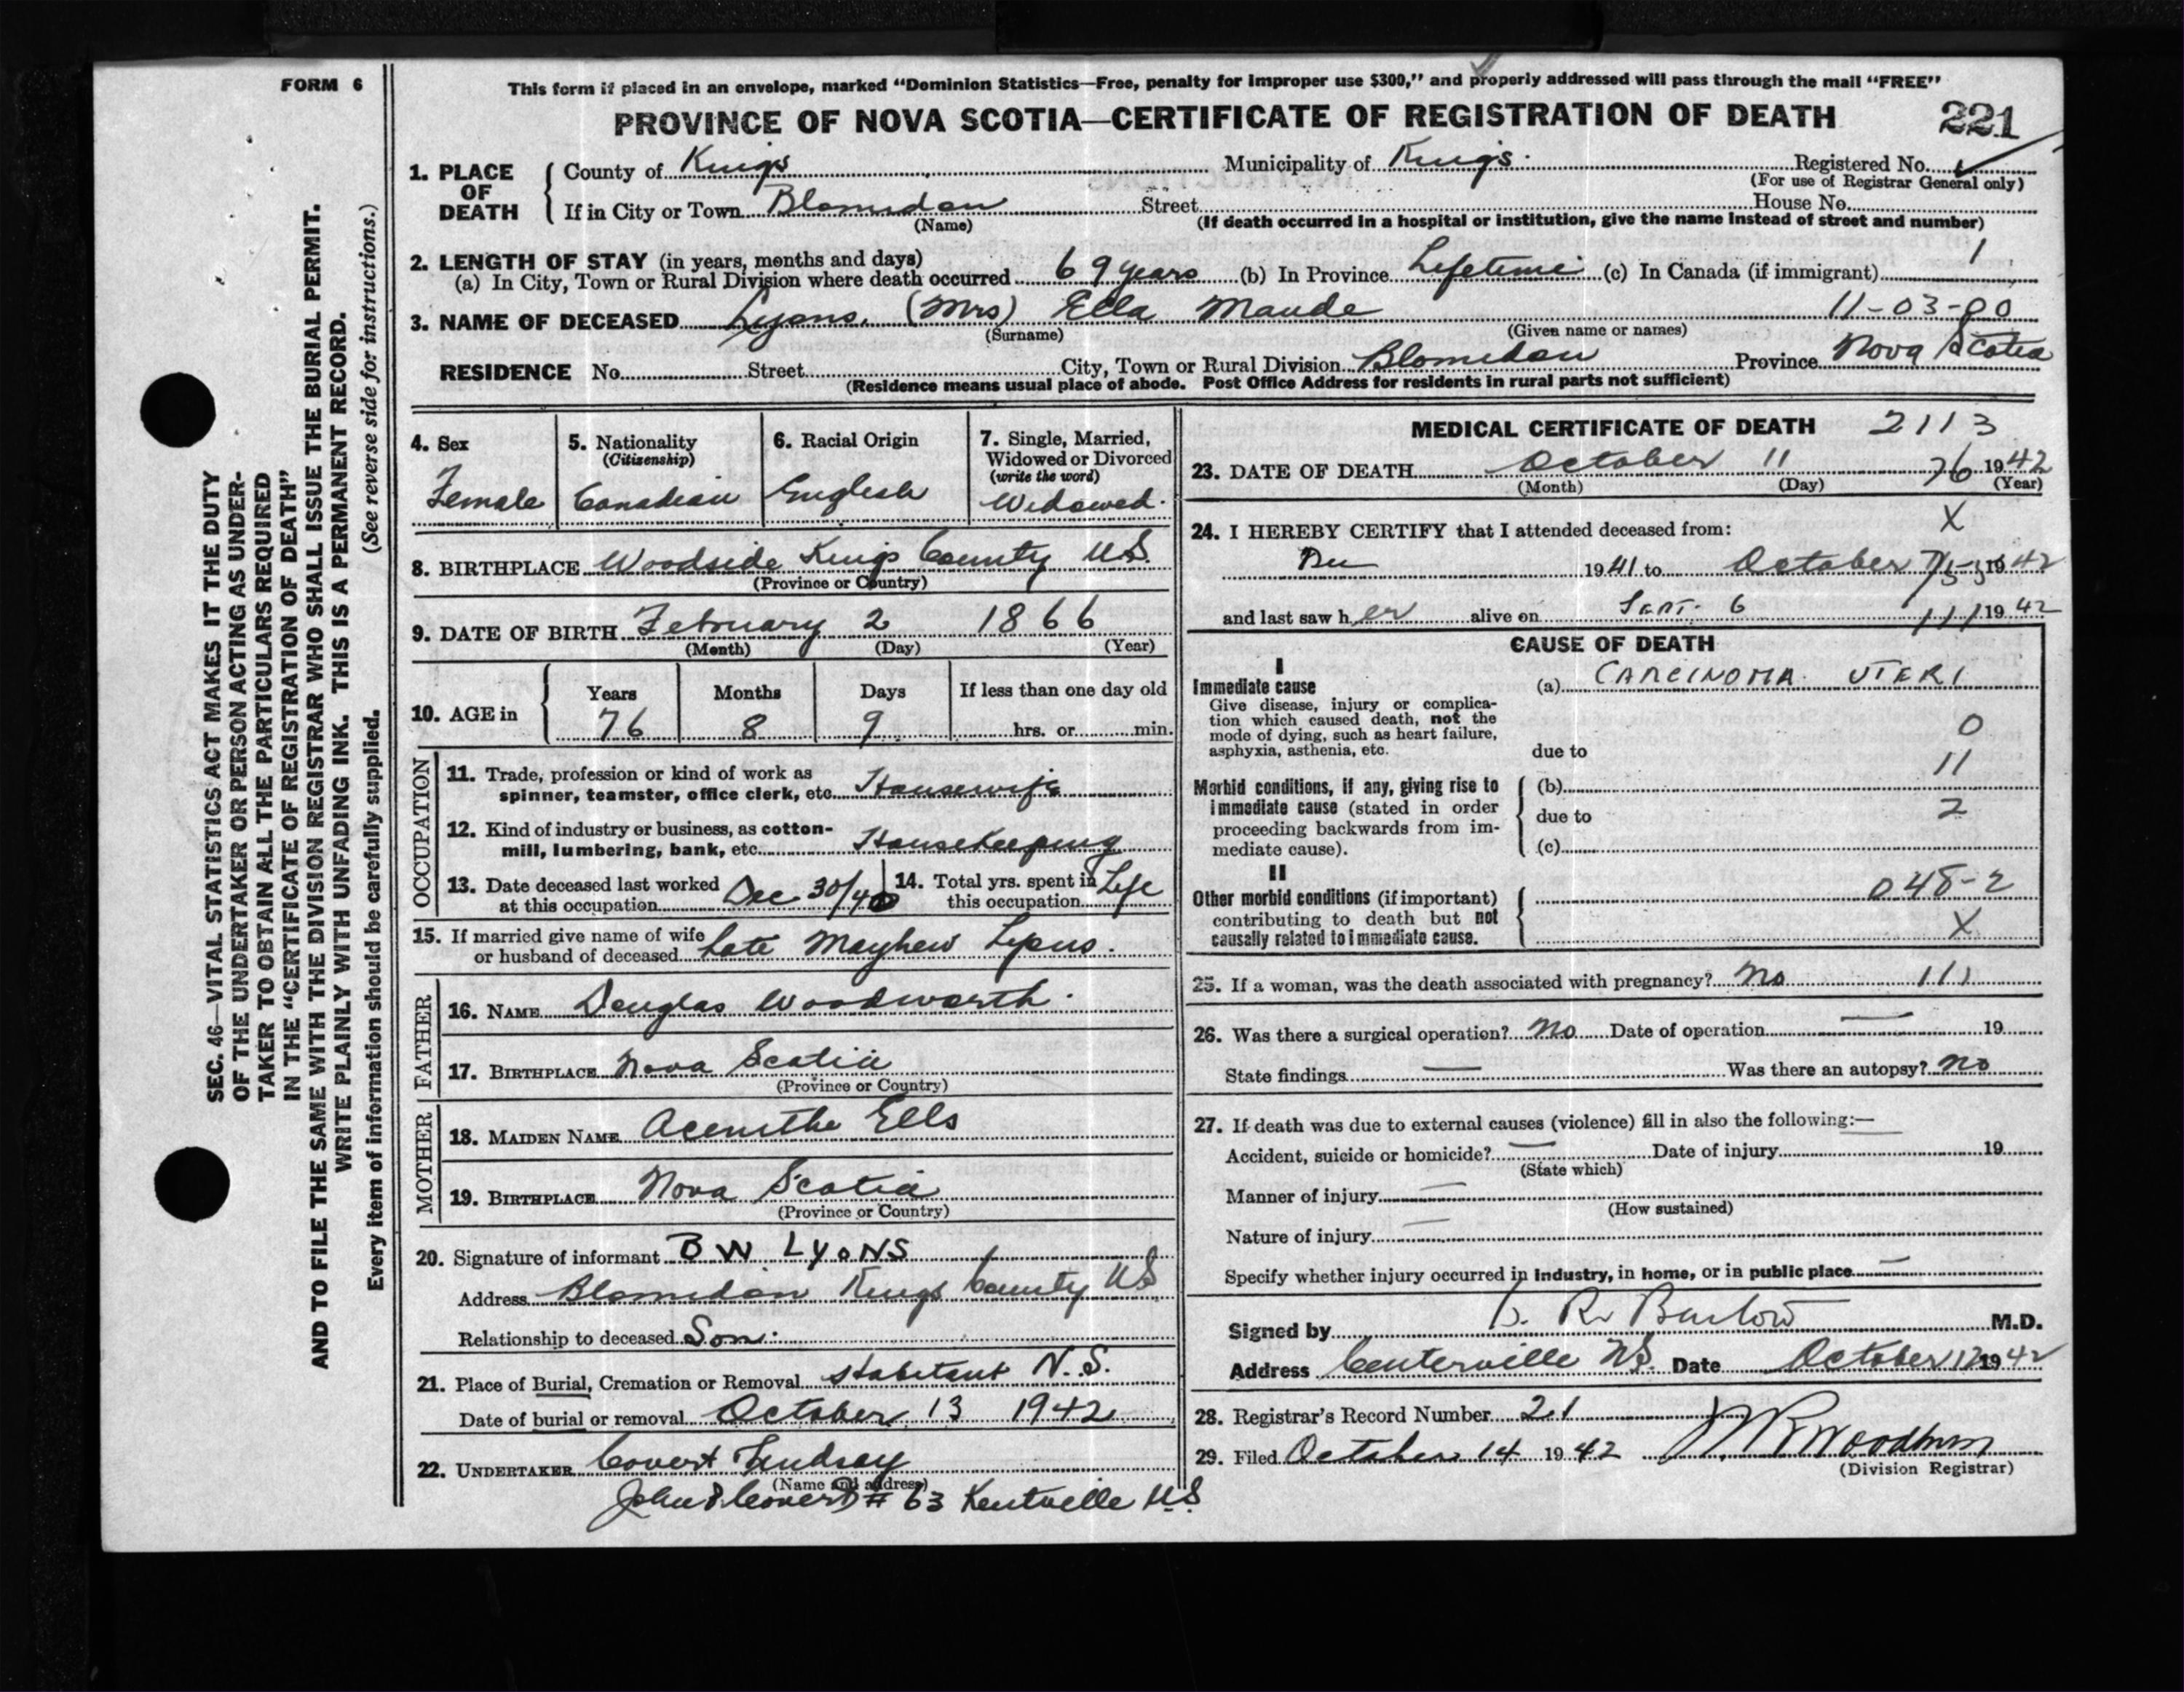 FORM 6
This form if placed in an envelope, marked “Dominion Statistics—Free, penalty for improper use $300,” and properly addressed will pass through the mail “FREE”
PROVINCE OF NOVA SCOTIA—CERTIFICATE OF REGISTRATION OF DEATH 221
1. PLACE OF DEATH
County of Kings Municipality of Kings. Registered No.
(For use of Registrar General only)
If in City or Town Blomidon Street House No.
(Name) (If death occurred in a hospital or institution, give the name instead of street and number)
2. LENGTH OF STAY (in years, months and days)
(a) In City, Town or Rural Division where death occurred 69 years (b) In Province Lifetime (c) In Canada (if immigrant) 1
3. NAME OF DECEASED Lyons. (Mrs) Ella Maude 11-03-00
(Surname) (Given name or names)
RESIDENCE No. Street City, Town or Rural Division Blomidon Province Nova Scotia
(Residence means usual place of abode. Post Office Address for residents in rural parts not sufficient)
4. Sex
Female
5. Nationality
(Citizenship)
Canadian
6. Racial Origin
English
7. Single, Married,
Widowed or Divorced
(write the word)
Widowed.
8. BIRTHPLACE Woodside Kings County N.S.
(Province or Country)
9. DATE OF BIRTH February 2 1866
(Month) (Day) (Year)
10. AGE in
Years Months Days If less than one day old
76 8 9 hrs. or min.
OCCUPATION
11. Trade, profession or kind of work as
spinner, teamster, office clerk, etc. Housewife
12. Kind of industry or business, as cotton-
mill, lumbering, bank, etc. Housekeeping
13. Date deceased last worked
at this occupation Dec 30/40
14. Total yrs. spent in
this occupation Life
15. If married give name of wife
or husband of deceased Late Mayhew Lyons.
FATHER
16. NAME Douglas Woodworth.
17. BIRTHPLACE Nova Scotia
(Province or Country)
MOTHER
18. MAIDEN NAME Ells
19. BIRTHPLACE Nova Scotia
(Province or Country)
20. Signature of informant B W LYONS
Address Blomidon Kings County N.S
Relationship to deceased Son.
21. Place of Burial, Cremation or Removal Habitant N.S.
Date of burial or removal October 13 1942
22. UNDERTAKER Covert Lindsay
(Name and address)
John Covert # 63 Kentville N.S
MEDICAL CERTIFICATE OF DEATH 2113
23. DATE OF DEATH October 11 76 1942
(Month) (Day) (Year)
24. I HEREBY CERTIFY that I attended deceased from: X
Dec 1941 to October 1942
and last saw her alive on Sept. 6 1942
CAUSE OF DEATH
I
Immediate cause
Give disease, injury or complica-
tion which caused death, not the
mode of dying, such as heart failure,
asphyxia, asthenia, etc.
(a) CARCINOMA UTERI
0
due to
11
Morbid conditions, if any, giving rise to
immediate cause (stated in order
proceeding backwards from im-
mediate cause).
(b)
due to 2
(c)
II
Other morbid conditions (if important)
contributing to death but not
causally related to immediate cause.
048-2
X
25. If a woman, was the death associated with pregnancy? No 111
26. Was there a surgical operation? No Date of operation — 19
State findings — Was there an autopsy? No
27. If death was due to external causes (violence) fill in also the following:—
Accident, suicide or homicide? — Date of injury 19
(State which)
Manner of injury —
(How sustained)
Nature of injury —
Specify whether injury occurred in industry, in home, or in public place —
Signed by R. M.D.
Address Centerville N.S. Date October 12 1942
28. Registrar's Record Number 21
29. Filed October 14 1942
(Division Registrar)
SEC. 46—VITAL STATISTICS ACT MAKES IT THE DUTY
OF THE UNDERTAKER OR PERSON ACTING AS UNDER-
TAKER TO OBTAIN ALL THE PARTICULARS REQUIRED
IN THE “CERTIFICATE OF REGISTRATION OF DEATH”
AND TO FILE THE SAME WITH THE DIVISION REGISTRAR WHO SHALL ISSUE THE BURIAL PERMIT.
WRITE PLAINLY WITH UNFADING INK. THIS IS A PERMANENT RECORD.
Every item of information should be carefully supplied. (See reverse side for instructions.)